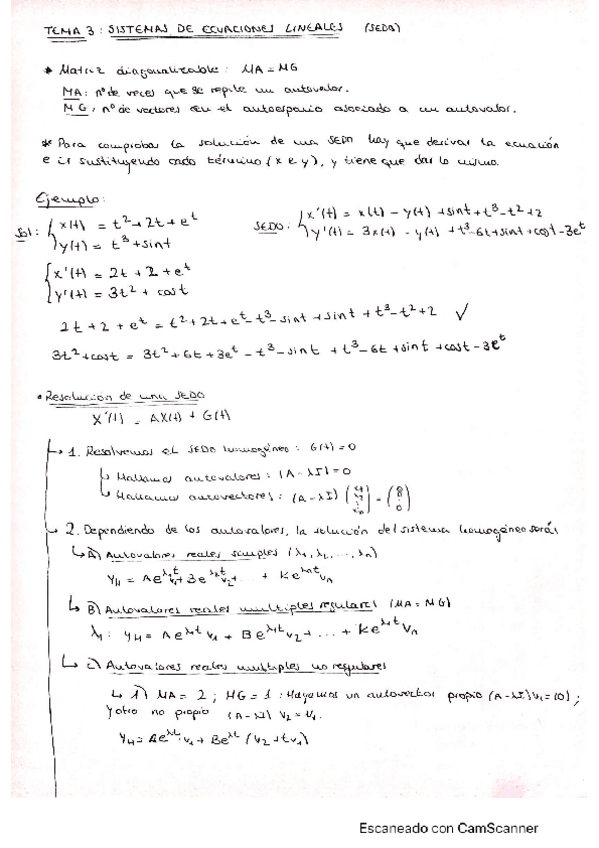 TEMA 3: SISTEMAS DE ECUACIONES LINEALES (SEDO)
* Matriz diagonalizable: MA = MG
MA: nº de veces que se repite un autovalor.
MG: nº de vectores en el autoespacio asociado a un autovalor.
* Para comprobar la solución de una SEDO hay que derivar la ecuación
e ir sustituyendo cada término (x e y), y tiene que dar lo mismo.
Ejemplo:
Sol: { x(t) = t² + 2t + e^t
y(t) = t³ + sint
SEDO: { x'(t) = x(t) - y(t) + sint + t³ - t² + 2
y'(t) = 3x(t) - y(t) + t³ - 6t + sint + cost - 3e^t
{ x'(t) = 2t + 2 + e^t
y'(t) = 3t² + cost
2t + 2 + e^t = t² + 2t + e^t - t³ - sint + sint + t³ - t² + 2 ✓
3t² + cost = 3t² + 6t + 3e^t - t³ - sint + t³ - 6t + sint + cost - 3e^t
• Resolución de una SEDO
X'(t) = AX(t) + G(t)
↳ 1. Resolvemos el SEDO homogéneo: G(t) = 0
↳ Hallamos autovalores: (A - λI) = 0
↳ Hallamos autovectores: (A - λI)
↳ 2. Dependiendo de los autovalores, la solución del sistema homogéneo será:
↳ A) Autovalores reales simples (λ₁, λ₂, ..., λn)
Y_H = Ae^{λ₁t}v₁ + Be^{λ₂t}v₂ + ... + Ke^{λnt}vn
↳ B) Autovalores reales multiples regulares (MA = MG)
λ₁: Y_H = Ae^{λ₁t}v₁ + Be^{λ₁t}v₂ + ... + Ke^{λ₁t}vn
↳ C) Autovalores reales multiples no regulares
↳ 1) MA = 2; MG = 1: Hayamos un autovector propio (A - λI)v₁ = (0);
y otro no propio (A - λI) v₂ = v₁.
Y_H = Ae^{λt}·v₁ + Be^{λt} (v₂ + tv₁)
Escaneado con CamScanner